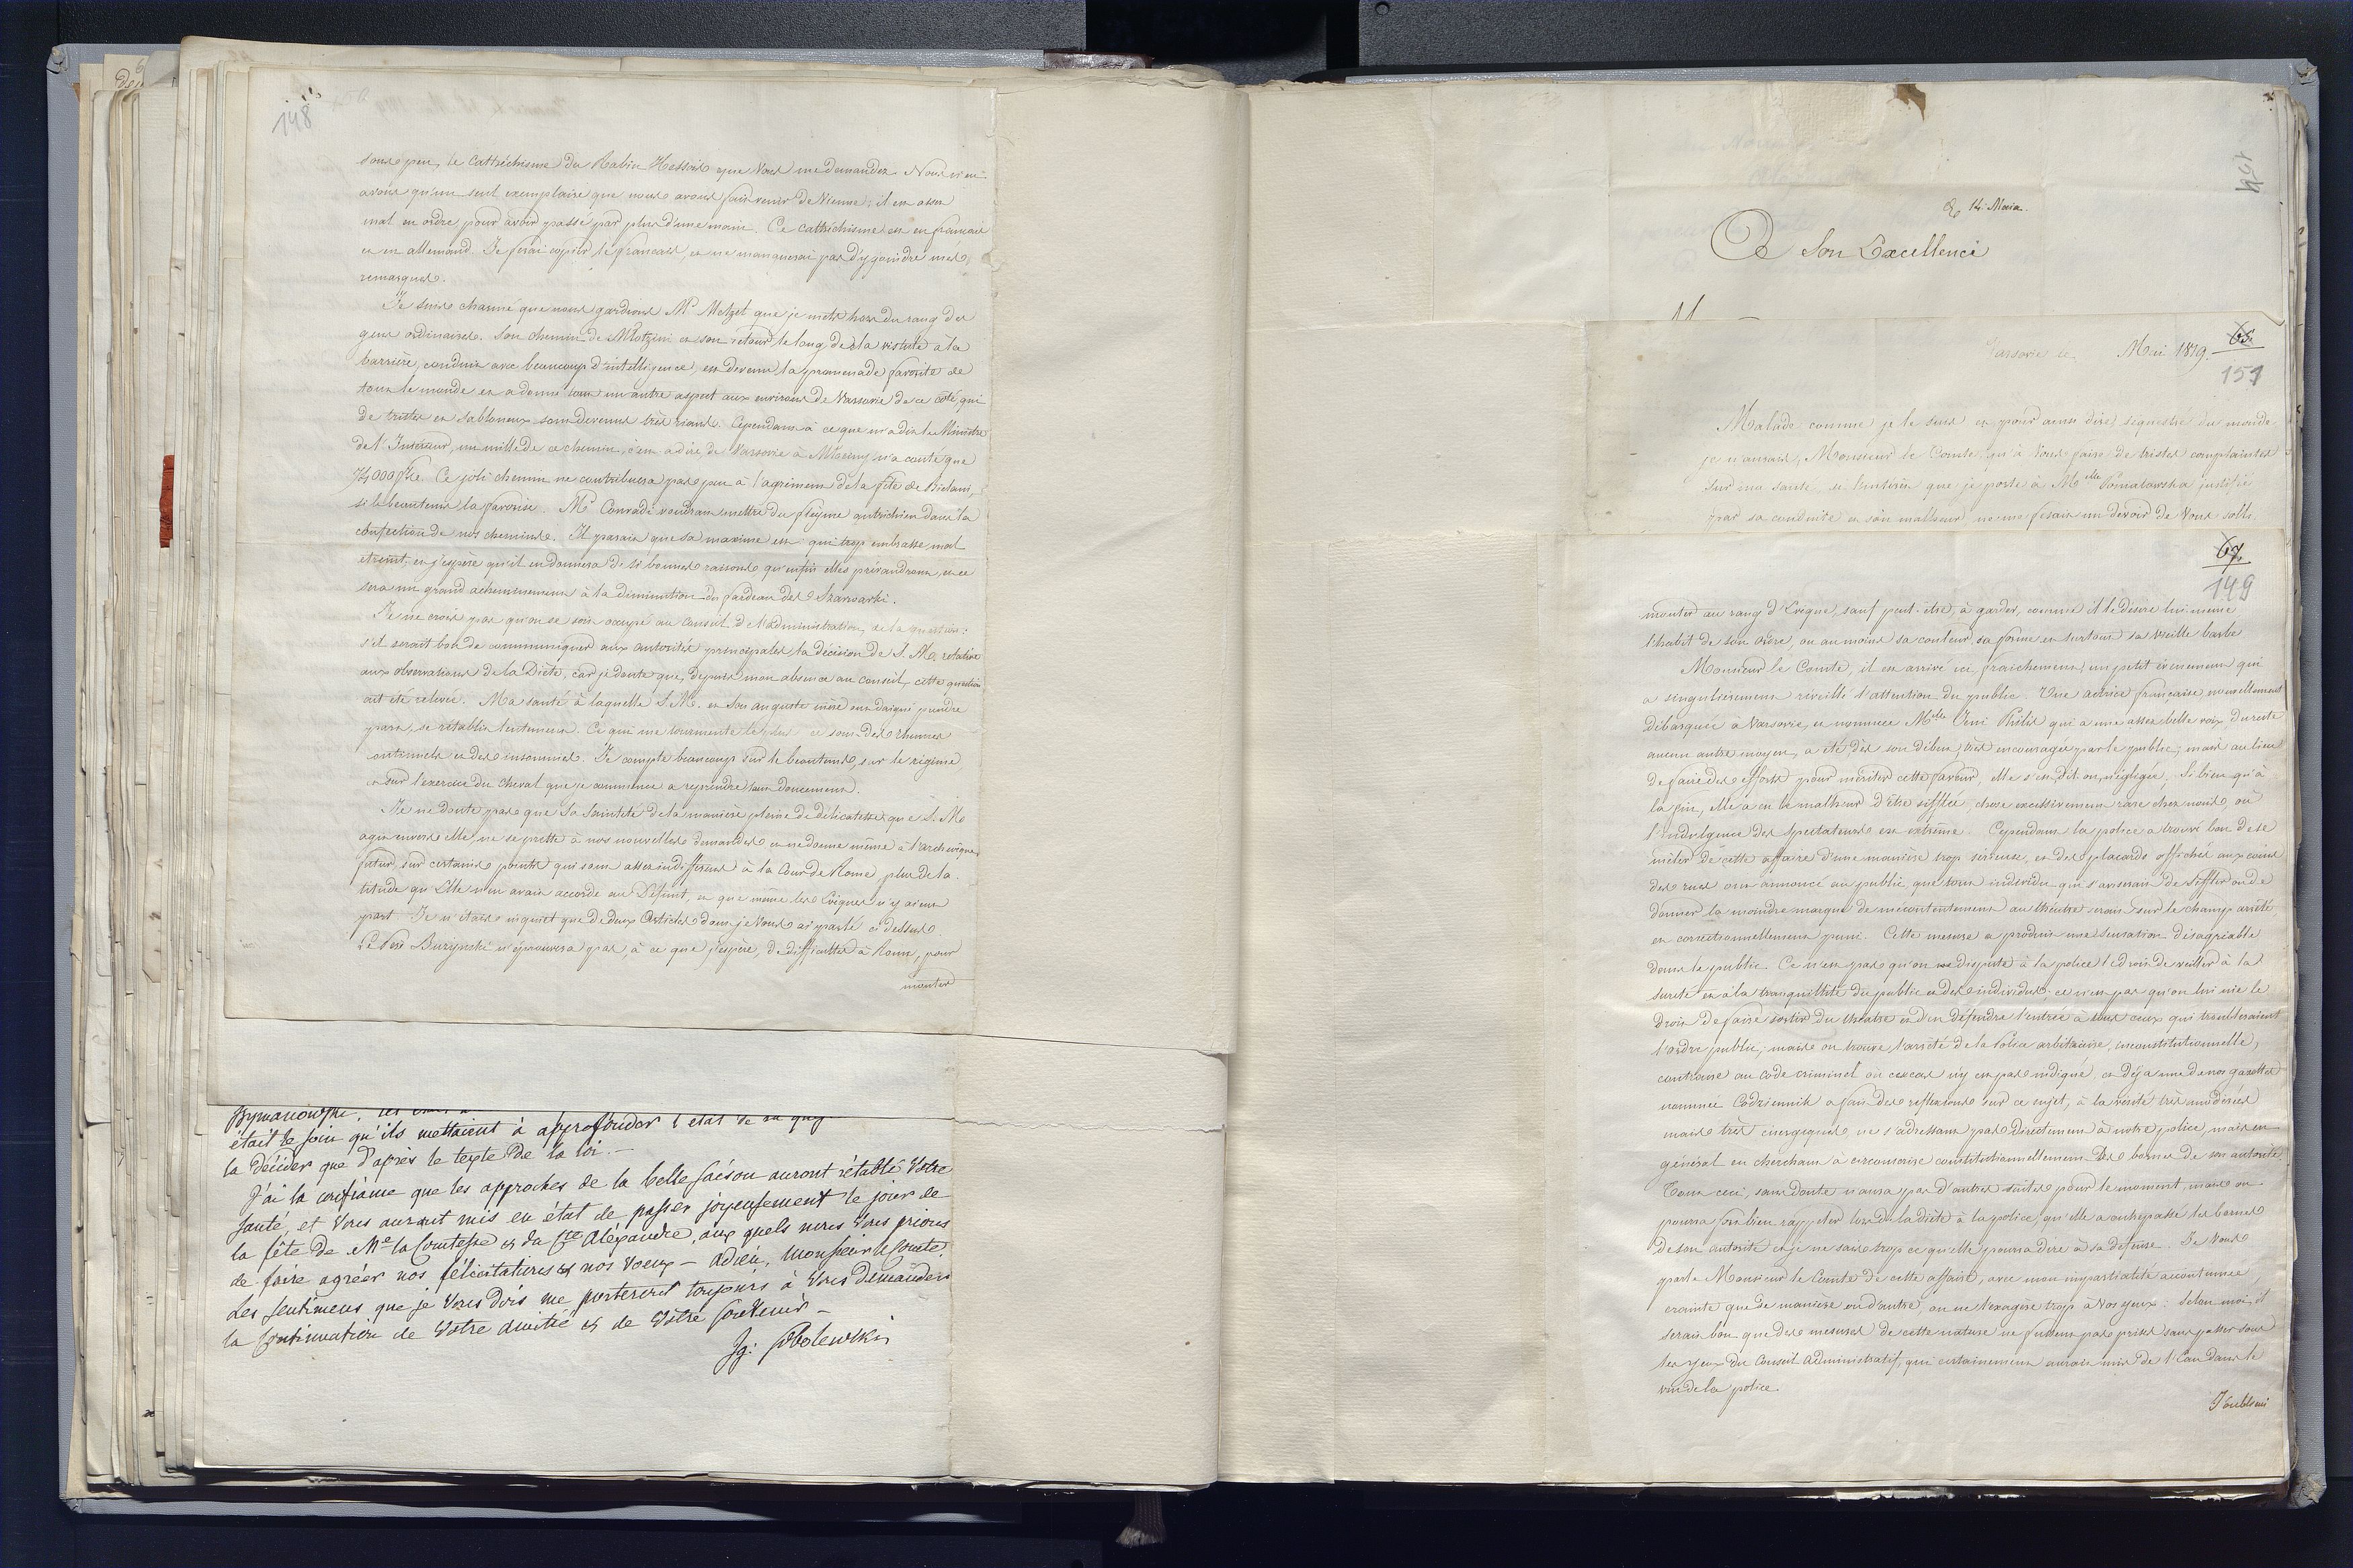 148
sous peu, le Cattéchisme du Rabin Hessois que Vous me demandez. Nous n'en
avons qu'un seul exemplaire que nous avons fait venir de Vienne; il est assez
mal en ordre pour avoir passé par plus d'une main. Ce cattéchisme est en français
et en allemand. Je ferai copier le français, et ne manquerai pas d'y joindre mes
remarques.
Je suis charmé que nous gardions Mr Metzel que je mets hors du rang des
gens ordinaires. Son chemin de Młotzini et son retour le long de la vistule à la
barrière, conduit avec beaucoup d'intelligence, est devenu la promenade favorite de
tout le monde et a donné tout un autre aspect aux environs de Varsovie de ce côté, qui
de tristes et sabloneux sont devenus très riants. Cependant à ce que m'a dit le Ministre
de l'Interieur, un mille de ce chemin, c'est à dire, de Varsovie à n'a couté que
74,000 fl. Ce joli chemin ne contribuera pas peu à l'agrément de la fête de Bielani,
si le beau tems la favorise. Mr Conradi voudrait mettre du flegme autrichien dans la
confection de nos chemins. Il parait que sa maxime est: qui trop embrasse mal
étreint, et j'espère qu'il en donnera de si bonnes raisons qu'enfin elles prévaudront, et ce
sera un grand acheminement à la diminution du fardeau des Szarwarki.
Je ne crois pas qu'on se soit occupé au Conseil d'Administration, de la question:
s'il serait bon de communiquer aux autorités principales la décision de S. M. relative
aux observations de la Diète, car je doute que, depuis mon absence au conseil, cette question
ait été relevée. Ma santé à laquelle S. M. et Son auguste mère ont daigné prendre
part, se rétablit lentement. Ce que me tourmente le plus ce sont des rhumes
continuels et des insomnies. Je compte beaucoup sur le beau tems, sur le régime,
et sur l'exercice du cheval que je commence à reprendre tout doucement.
Je ne doute pas que Sa Sainteté de la manière pleine de délicatesse que S. M.
agit envers elle, ne se prette à nos nouvelles demandes et ne donne même à l'archevêque
futur, sur certains points qui sont assez indifférents à la Cour de Rome plus de la-
titude qu'Elle n'en avait accordé au Défunt, et que même les Evêques n'y aient
part. Je n'étais inquiet que de deux Articles dont je Vous ai parlé ci dessus.
Le Père Burzynski n'éprouvera pas, à ce que j'espère, de difficultés à Rome, pour
monter
était le soin qu'ils mettaient à approfondir l'état de la
la décider que d'après le texte de la loi. —
J'ai la confiance que les approches de la belle saison auront rétabli Votre
santé, et Vous auront mis en état de passer joyeusement le jour de
la fête de Me la Comtesse et du Cte Aléxandre, aux quels nous Vous prions
de faire agréer nos félicitations et nos voeux — Adieu, Monsieur le Comte.
Les sentimens que je Vous dois me porteront toujours à Vous demander
la Continuation de Votre amitié et de Vôtre souvenir —
Ig: Sobolewski
154
14. Maia
A Son Excellence
65.
Varsovie le Mai 1819.
151
Malade comme je le suis et pour ainsi dire, séquestré du monde
je n'aurais, Monsieur le Comte, qu'à Vous faire de tristes complaintes
sur ma santé, si l'intérêt que je porte à Melle Poniatowska justifié
par sa conduite et son malheur, ne me fesait un devoir de Vous solli
67.
149
monter au rang d'Evêque, sauf peut-être, à garder, comme il le desire lui même
l'habit de son Ordre, ou au moins sa couleur, sa forme et surtout sa vieille barbe
Monsieur le Comte, il est arrivé ici, fraichement, un petit évènement qui
a singulièrement réveillé l'attention du public. Une actrice française nouvellement
débarquée à Varsovie, et nommée Melle Philis qui a une assez belle voix, du reste
aucun autre moyen, a été dès son début, très encouragée par le public; mais au lieu
de faire des efforts pour mériter cette faveur, elle s'est, dit-on, négligée; si bien qu'à
la fin, elle a eu le malheur d'être sifflée, chose excessivement rare chez nous où
l'indulgence des spectateurs est extrême. Cependant la police a trouvé bon de se
mêler de cette affaire d'une manière trop sérieuse, et des placards affichés aux coins
des rues ont annoncé au public, que tout individu qui s'aviserait de siffler ou de
donner la moindre marque de mécontentement au théatre serait sur le champ arrêté
et correctionnellement puni. Cette mesure a produit une sensation désagréable
dans le public. Ce n'est pas qu'on dispute à la police le droit de veiller à la
sureté et à la tranquillité du public et des individus: ce n'est pas qu'on lui nie le
droit de faire sortir du théatre et d'en défendre l'entrée à tous ceux qui troubleraient
l'ordre public; mais on trouve l'arrêté de la Police arbitraire, inconstitutionnelle,
contraire au code criminel où ce cas n'y est pas indiqué, et déja une de nos gazettes
nommée Codziennik a fait des réflexions sur ce sujet, à la vérité très modérées
mais très énergiques, ne s'adressant pas directement à notre police, mais en
général en cherchant à circonscrire constitutionnellement les bornes de son autorité
Tout ceci, sans doute n'aura pas d'autres suites pour le moment, mais on
pourra fort bien rappeler lors de la diète à la police, qu'elle a outrepassé les bornes
de son autorité et je ne sais trop ce qu'elle pourra dire à sa défense. Je Vous
parle Monsieur le Comte de cette affaire, avec mon impartialité accoutumée,
crainte que de manière ou d'autre, on ne l'exagère trop à Vos yeux: selon moi, il
serait bon que des mesures de cette nature ne fussent pas prises sans passer sous
les yeux du Conseil Administratif, qui certainement aurait mis de l'eau dans le
vin de la police.
J'oubliais